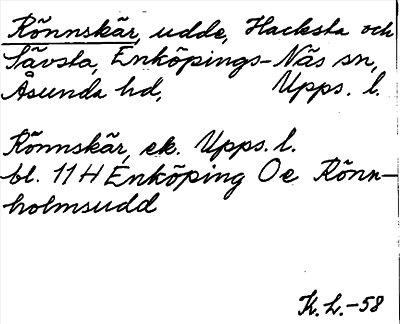 Rönnskär, udde, Hacksta och
Sävsta, Enköpings-Näs sn,
Åsunda hd, Upps. l.
Rönnskär, ek. Upps. l.
bl. 11 H Enköping Oe Rönn-
holmsudd
K.L.-58